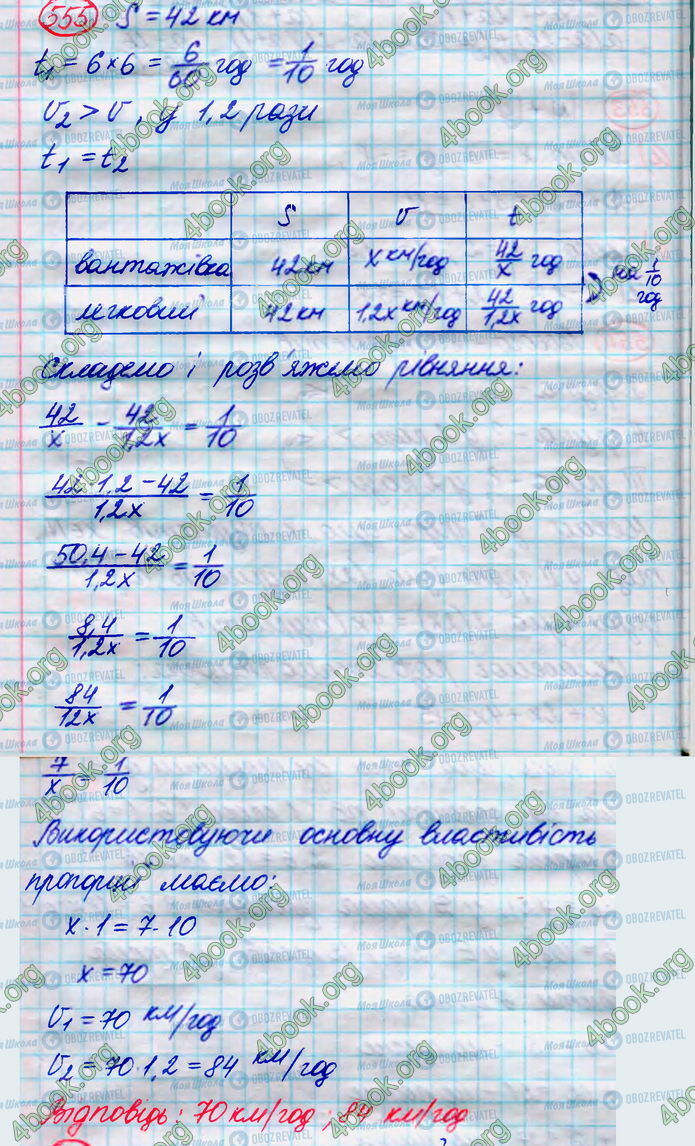 555 S = 42 км
t₁ = 6 хв = 6/60 год = 1/10 год
υ₂ > υ, у 1,2 рази
t₁ = t₂
S υ t
вантажівка 42 км x км/год 42/x год
на 1/10 год
легковий 42 км 1,2x км/год 42/1,2x год
Складемо і розв'яжемо рівняння:
42/x - 42/1,2x = 1/10
42·1,2 - 42/1,2x = 1/10
50,4 - 42/1,2x = 1/10
8,4/1,2x = 1/10
84/12x = 1/10
7/x = 1/10
Використовуючи основну властивість
пропорції маємо:
x · 1 = 7 · 10
x = 70
υ₁ = 70 км/год
υ₂ = 70 · 1,2 = 84 км/год
Відповідь: 70 км/год; 84 км/год
4book.org
МояШкола OBOZREVATEL